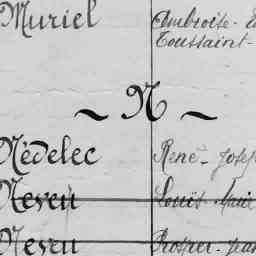 Muriel Ambroise-
Toussaint-
~ N ~
Nédelec René-Josep
Neveu Louis
Neveu Prosper-Jean